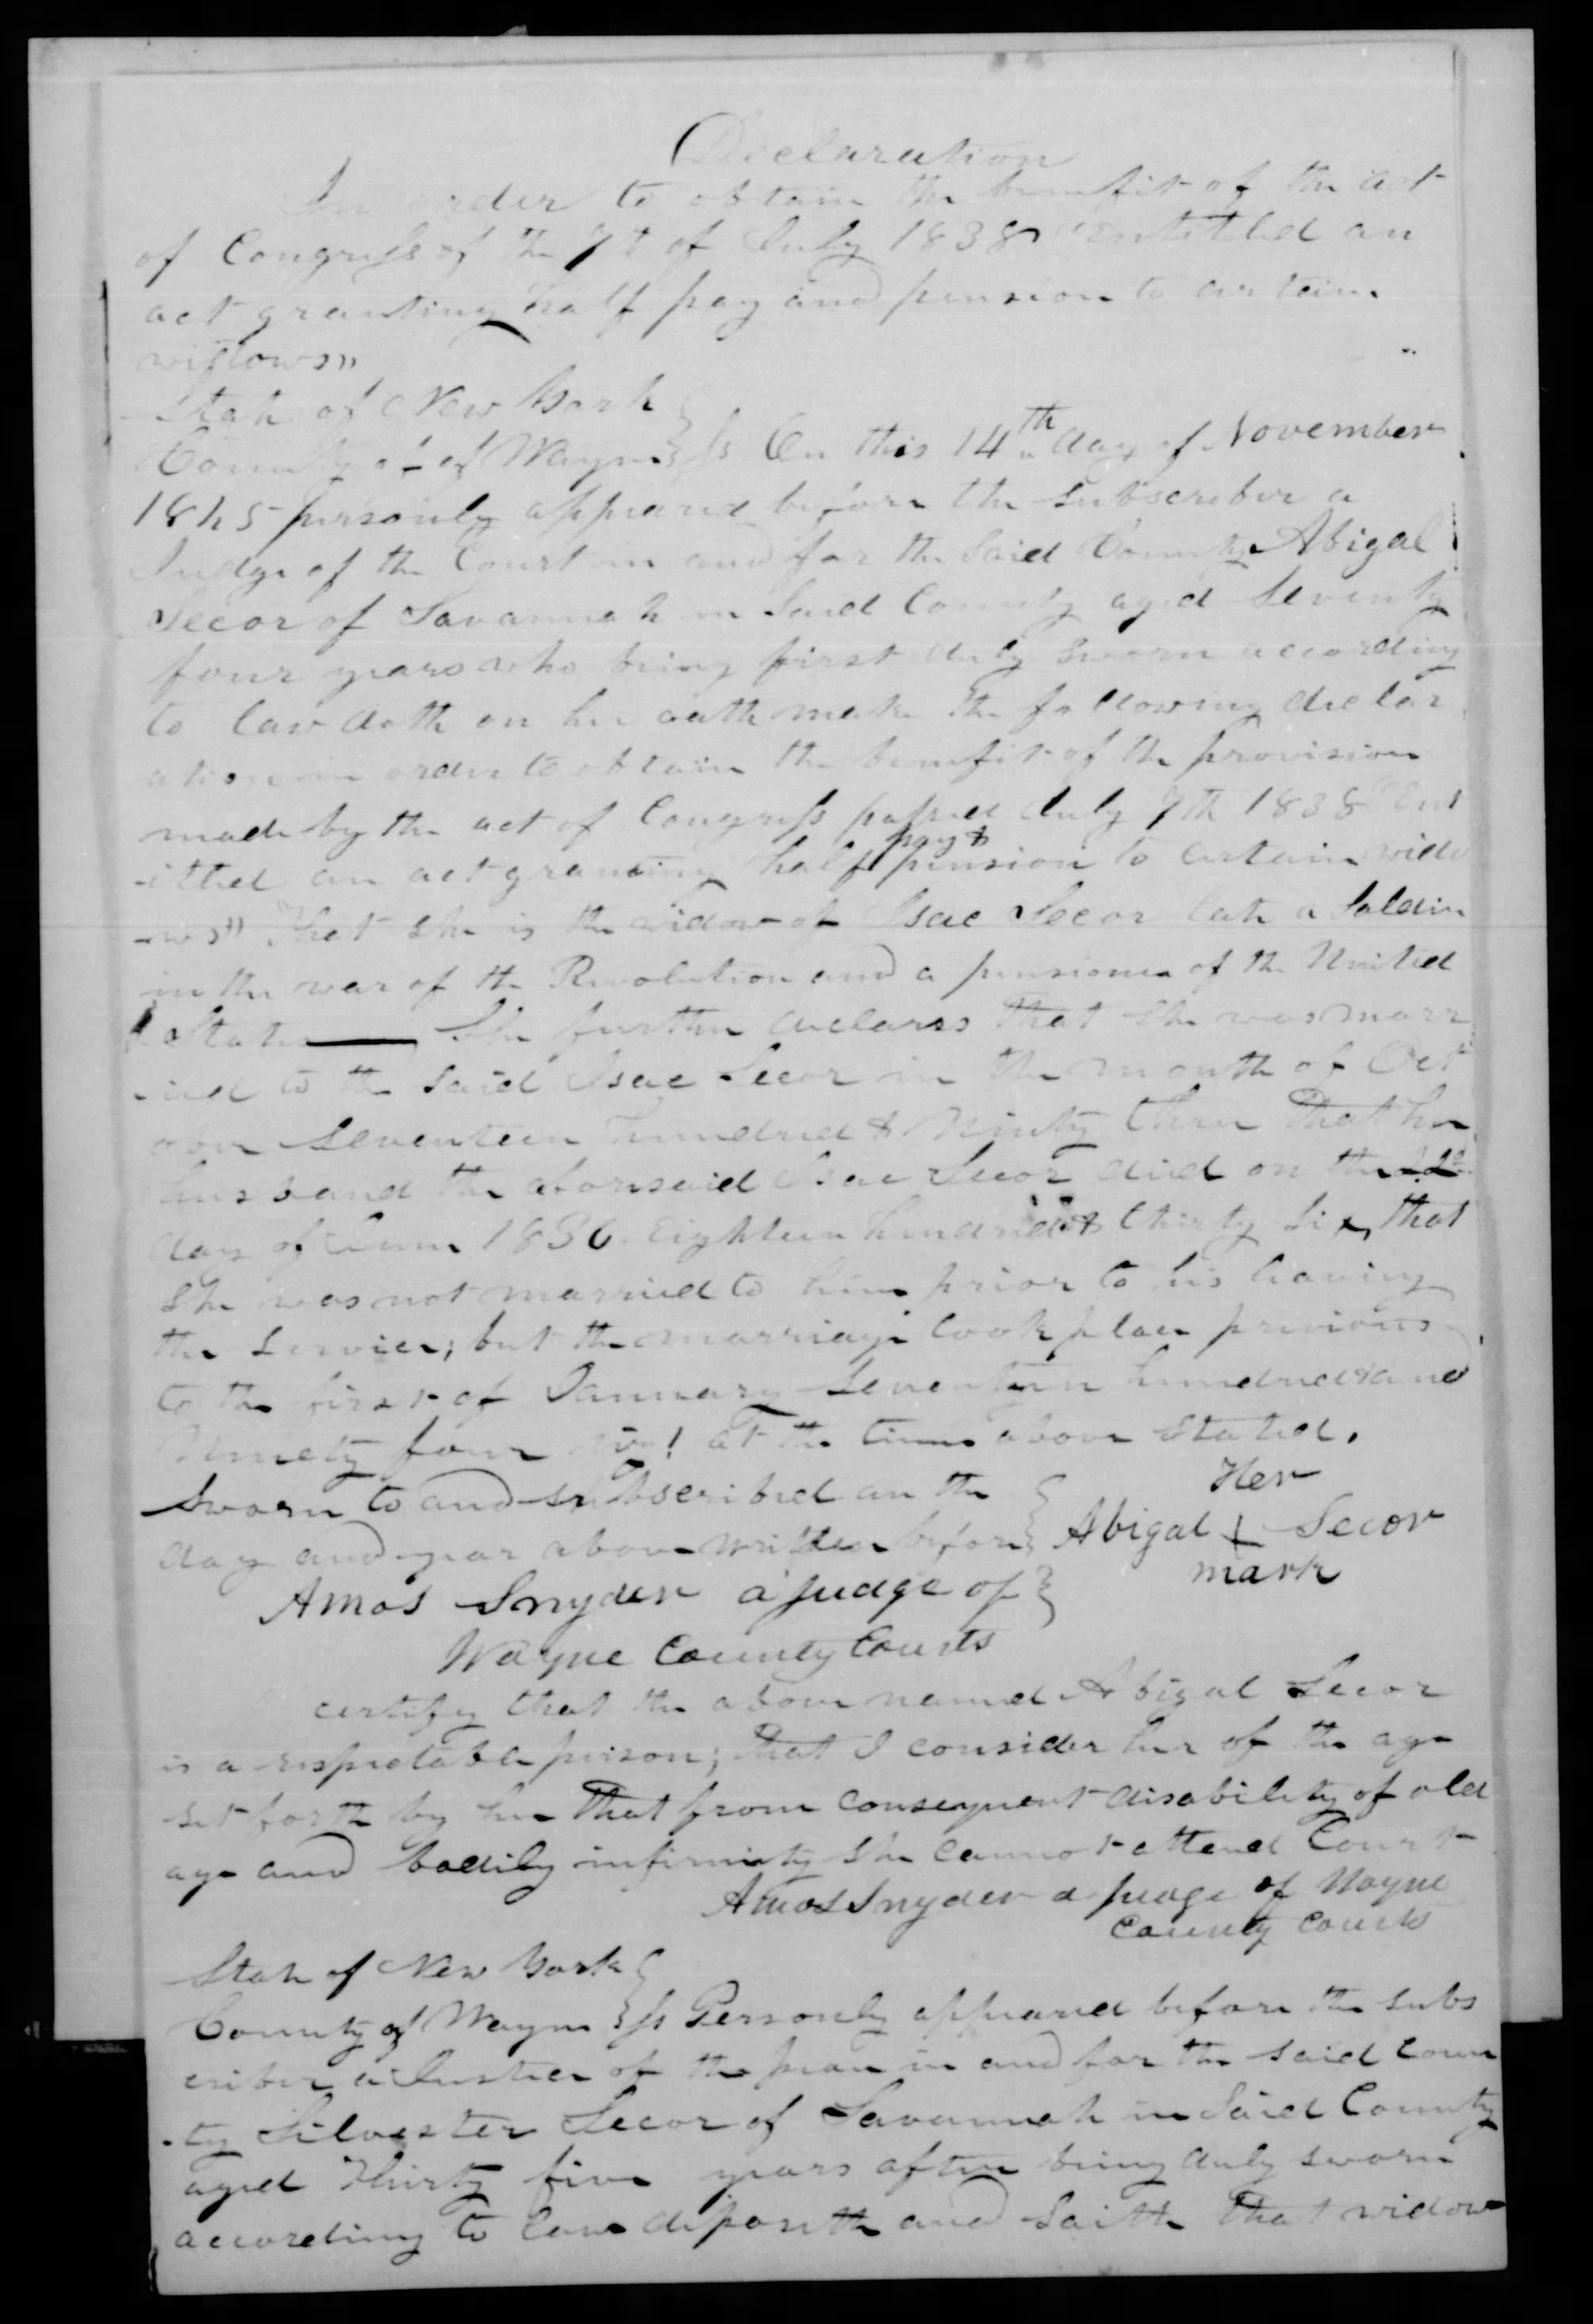 Declaration
In order to obtain the benefit of the act
of Congress of the 7th of July 1838 "entitled an
act granting half pay and pension to certain
widows"
State of New York
County of of Wayne ss On this 14th day of November
1845 personly appeared before the subscriber a
Judge of the Court in and for the Said County Abigal
Secor of Savannah in Said County aged Seventy
four years who being first duly sworn according
to law doth on her oath make the following declar
ation in order to obtain the benefit of the provision
made by the act of Congress passed July 7th 1838 "Ent
-itled an act granting half pay & pension to certain wido
-ws" That she is the widow of Isac Secor late a Soldier
in the war of the Revolution and a pensioner of the United
States She further declares that she was marr
-ied to the Said Isac Secor in the month of Oct
ober Seventeen hundred & Ninty three That her
husband the aforesaid Isac Secor died on the
day of June 1836 Eighteen hundred & thirty Six, that
She was not married to him prior to his leaving
the Service; but the marriage took place previous
to the first of January Seventeen hundred & and
Ninety four viz! at the time above Stated.
Sworn to and subscribed on the
day and year above written before
Her
Abigal Secor
mark
Amos Snyder a judge of
Wayne County Courts
certify that the above named Abigal Secor
is a respectable person; that I consider her of the age
set forth by her That from consequent disability of old
age and bodily infirmity She cannot attend Court
Amos Snyder a judge of Wayne
County Courts
State of New York
County of Wayne ss Personly appeared before the subs
criber a Justice of the peace in and for the said Coun
-ty Silvester Secor of Savannah in Said County
aged Thirty five years after being duly sworn
according to law deposeth and Saith That widow